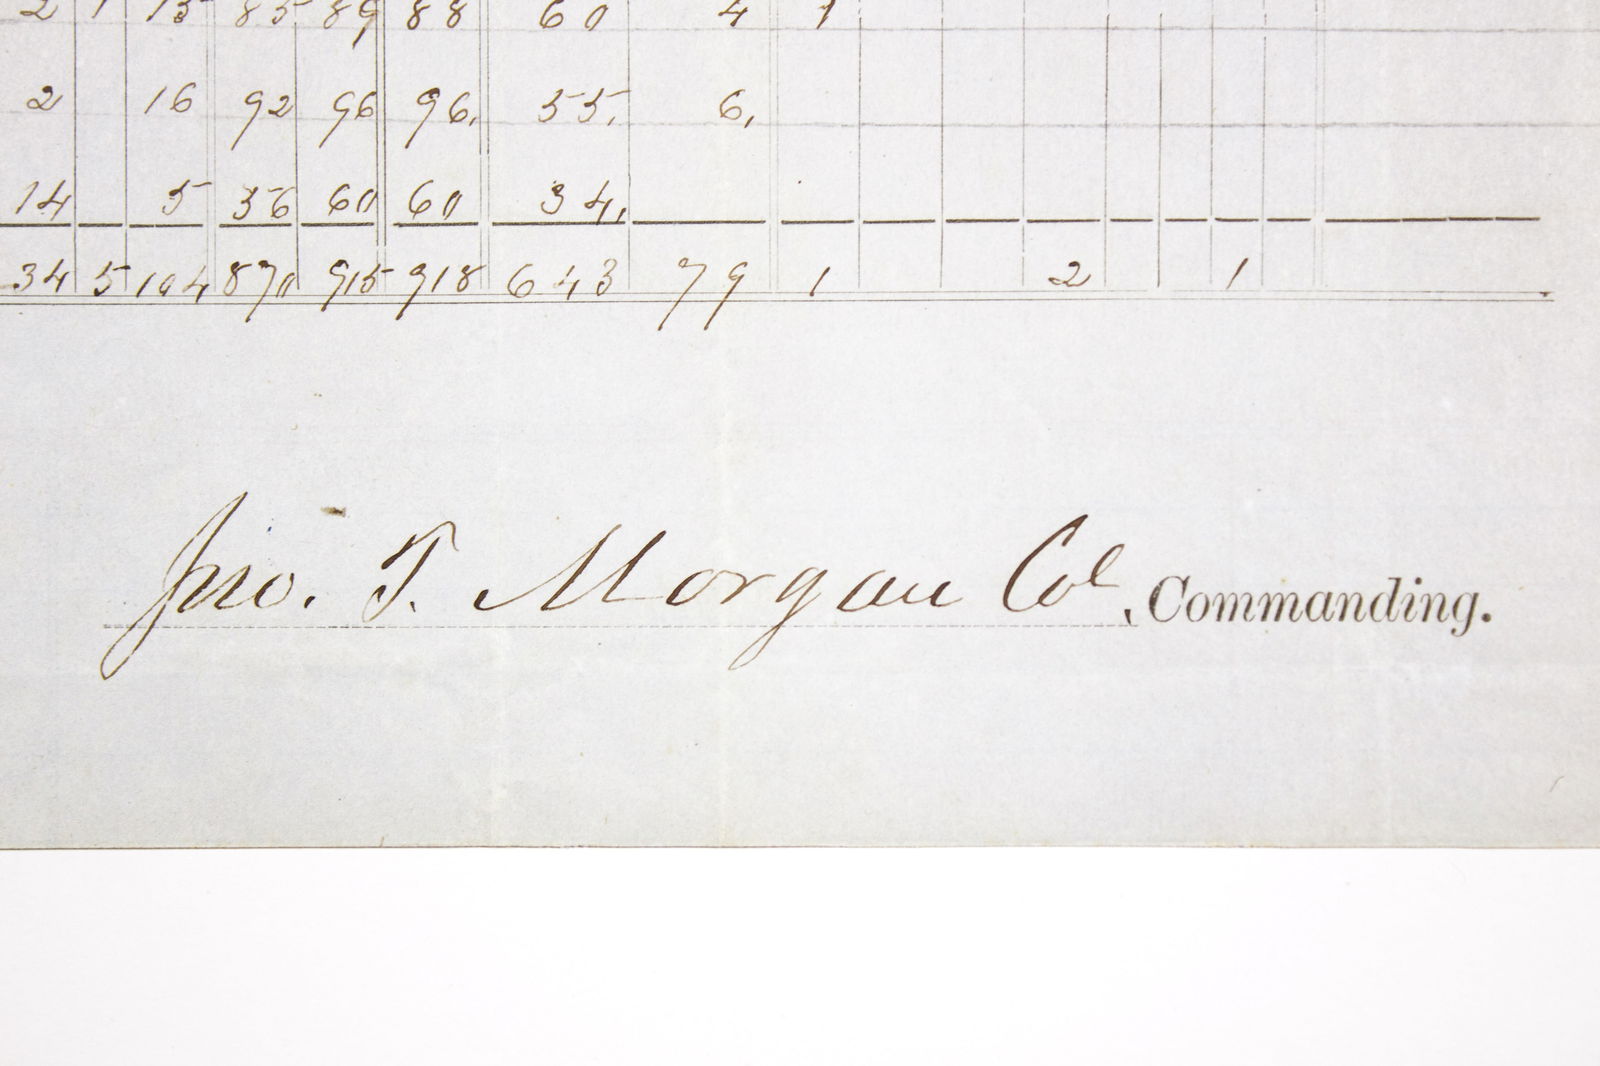 2 1 15 85 89 88 60 4 1
2 16 92 96 96, 55, 6,
14 5 56 60 60 34,
34 5 104 870 915 918 643 79 1 2 1
Jno. T. Morgan Col, Commanding.